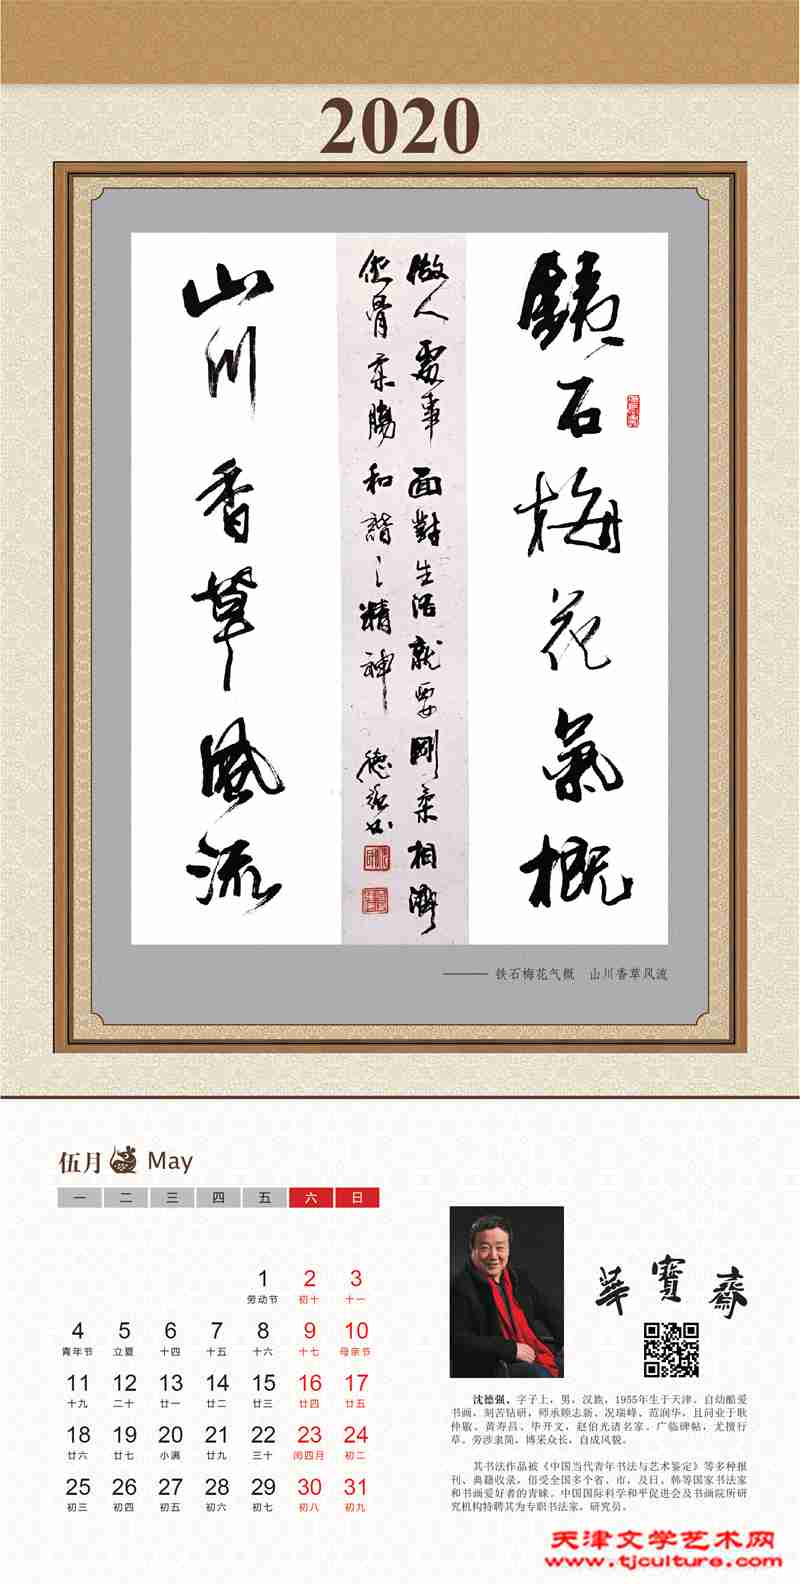 2020
鐵石梅花氣概
做人處事面對生活就要剛柔相濟
俠骨柔腸和諧之精神 德強书
山川香草風流
——— 铁石梅花气概 山川香草风流
伍月 May
一 二 三 四 五 六 日
1 2 3
劳动节 初十 十一
4 5 6 7 8 9 10
青年节 立夏 十四 十五 十六 十七 母亲节
11 12 13 14 15 16 17
十九 二十 廿一 廿二 廿三 廿四 廿五
18 19 20 21 22 23 24
廿六 廿七 小满 廿九 三十 闰四月 初二
25 26 27 28 29 30 31
初三 初四 初五 初六 初七 初八 初九
華寶齋
沈德强，字子上，男，汉族，1955年生于天津。自幼酷爱
书画，刻苦钻研，师承顾志新、况瑞峰、范润华，且问业于耿
仲敭、黄寿昌、毕开文、赵伯光诸名家。广临碑帖，尤擅行
草。旁涉隶简，博采众长，自成风貌。
其书法作品被《中国当代青年书法与艺术鉴定》等多种报
刊、典籍收录，倍受全国多个省、市，及日、韩等国家书法家
和书画爱好者的青睐。中国国际科学和平促进会及书画院所研
究机构特聘其为专职书法家，研究员。
天津文学艺术网
www.tjculture.com